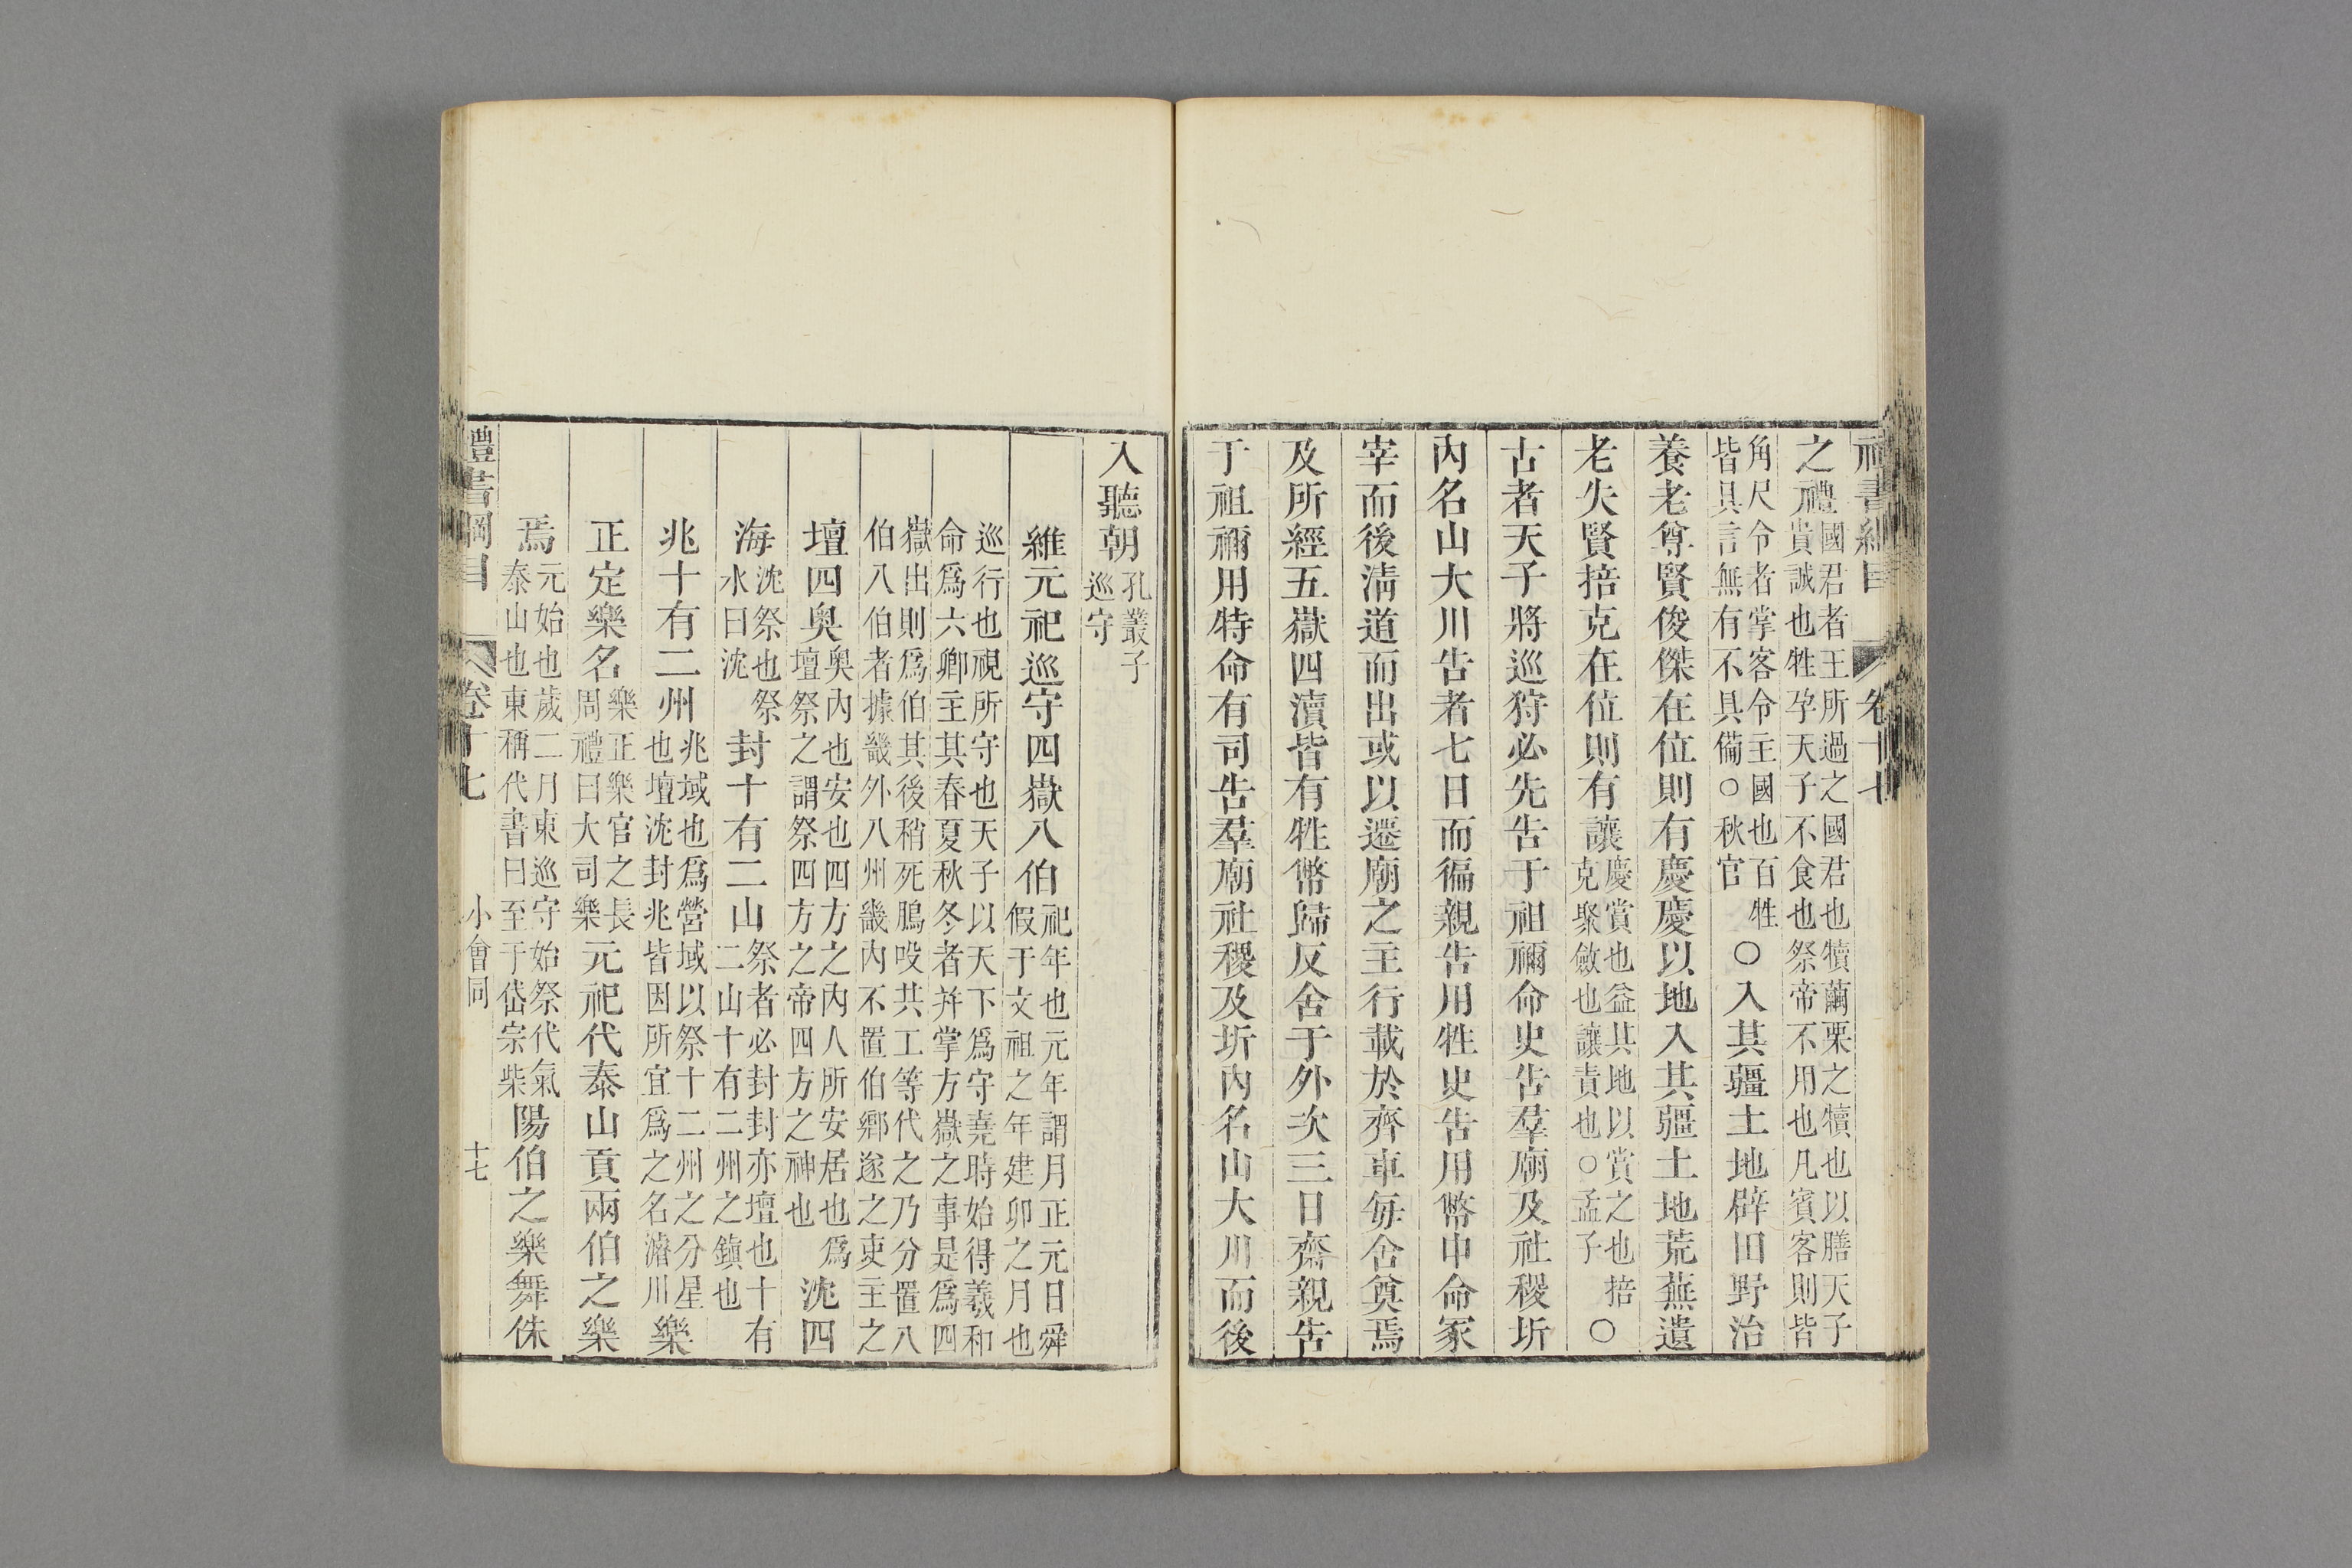 禮書綱目 卷十七
之禮國君者王所過之國君也犢繭栗之犢也以膳天子貴誠也牲孕天子不食也祭帝不用也凡賓客則皆
角尺令者掌客令主國也百牲皆具言無有不具備○秋官○入其疆土地辟田野治
養老尊賢俊傑在位則有慶慶以地入其疆土地荒蕪遺
老失賢掊克在位則有讓慶賞也益其地以賞之也掊克聚斂也讓責也○孟子○
古者天子將巡狩必先告于祖禰命史告羣廟及社稷圻
內名山大川告者七日而徧親告用牲史告用幣申命冢
宰而後淸道而出或以遷廟之主行載於齊車每舍奠焉
及所經五嶽四瀆皆有牲幣歸反舍于外次三日齋親告
于祖禰用特命有司告羣廟社稷及圻內名山大川而後
入聽朝孔叢子巡守
維元祀巡守四嶽八伯祀年也元年謂月正元日舜假于文祖之年建卯之月也
巡行也視所守也天子以天下爲守堯時始得羲和命爲六卿主其春夏秋冬者并掌方嶽之事是爲四
嶽出則爲伯其後稍死鵰吺共工等代之乃分置八伯八伯者據畿外八州畿內不置伯鄉遂之吏主之
壇四奧奧內也安也四方之內人所安居也爲壇祭之謂祭四方之帝四方之神也沈四
海沈祭也祭水曰沈封十有二山祭者必封封亦壇也十有二山十有二州之鎭也
兆十有二州兆域也爲營域以祭十二州之分星也壇沈封兆皆因所宜爲之名濬川樂
正定樂名樂正樂官之長周禮曰大司樂元祀代泰山貢兩伯之樂
焉元始也歲二月東巡守始祭代氣泰山也東稱代書曰至于岱宗柴陽伯之樂舞侏
禮書綱目 卷十七 小會同 十七